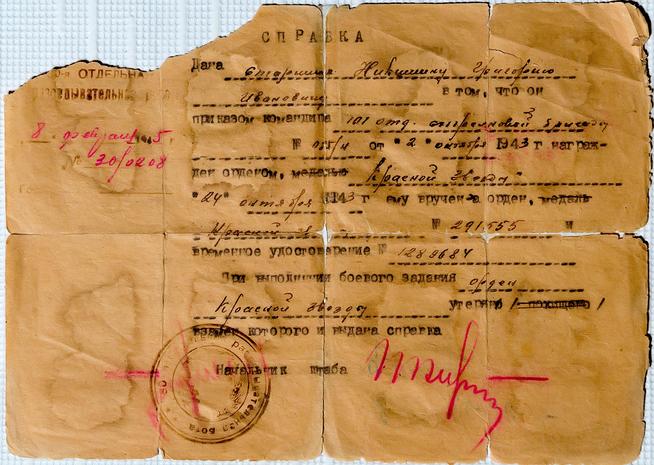 СПРАВКА
ОТДЕЛЬНА
Дана старшине Никишину Григорию
Ивановичу в том, что он
приказом командира 101 отд. стрелковой бригады
№ от "2" октября 1943 г награж-
ден орденом, медалью "Красной Звезды"
"24" октября 1943 г ему вручен орден, медаль
Красной № 291555 и
временное удостоверение № 1289684
При выполнении боевого задания орден
Красной Звезды утерян /похищено/
взамен которого и выдана справка
Начальник штаба
8 февраля 1945
№ 30/0208